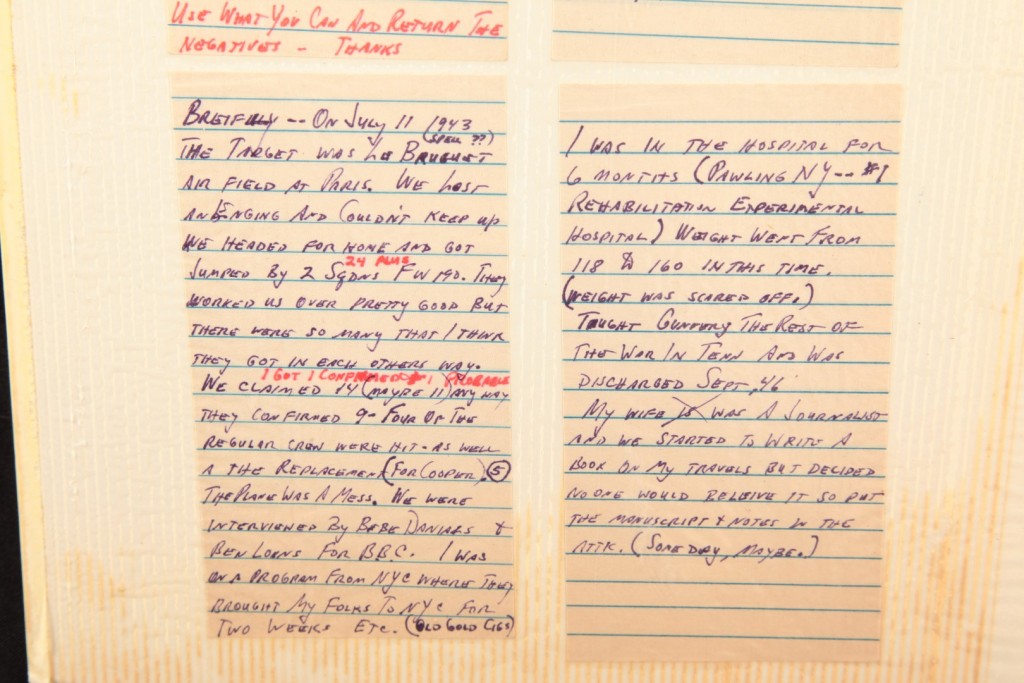 USE WHAT YOU CAN AND RETURN THE
NEGATIVES - THANKS
BREIFLLY -- ON JULY 11 1943
(SPELL ??)
THE TARGET WAS LE BRUGUET
AIR FIELD AT PARIS. WE LOST
AN ENGING AND COULDN'T KEEP UP
WE HEADED FOR HOME AND GOT
24 PLUS
JUMPED BY 2 SQDNS FW 190. THEY
WORKED US OVER PRETTY GOOD BUT
THERE WERE SO MANY THAT I THINK
THEY GOT IN EACH OTHERS WAY.
I GOT 1 CONFIRMED + 1 PROBABLE
WE CLAIMED 14 (MAYBE 11) ANY WAY
THEY CONFIRMED 9 - FOUR OF THE
REGULAR CREW WERE HIT - AS WELL
A THE REPLACEMENT (FOR COOPER). 5
THE PLANE WAS A MESS. WE WERE
INTERVIEWED BY BEBE DANIALS &
BEN LOENS FOR B.B.C. I WAS
ON A PROGRAM FROM NYC WHERE THEY
BROUGHT MY FOLKS TO NYC FOR
TWO WEEKS ETC. (OLD GOLD CIGS)
I WAS IN THE HOSPITAL FOR
6 MONTHS (PAWLING NY -- #1
REHABILITATION EXPERIMENTAL
HOSPITAL) WEIGHT WENT FROM
118 TO 160 IN THIS TIME.
(WEIGHT WAS SCARED OFF.)
TAUGHT GUNNERY THE REST OF
THE WAR IN TENN AND WAS
DISCHARGED SEPT, 46
MY WIFE IS WAS A JOURNALIST
AND WE STARTED TO WRITE A
BOOK ON MY TRAVELS BUT DECIDED
NO ONE WOULD BELEIVE IT SO PUT
THE MANUSCRIPT & NOTES IN THE
ATTK. (SOMEDAY, MAYBE.)